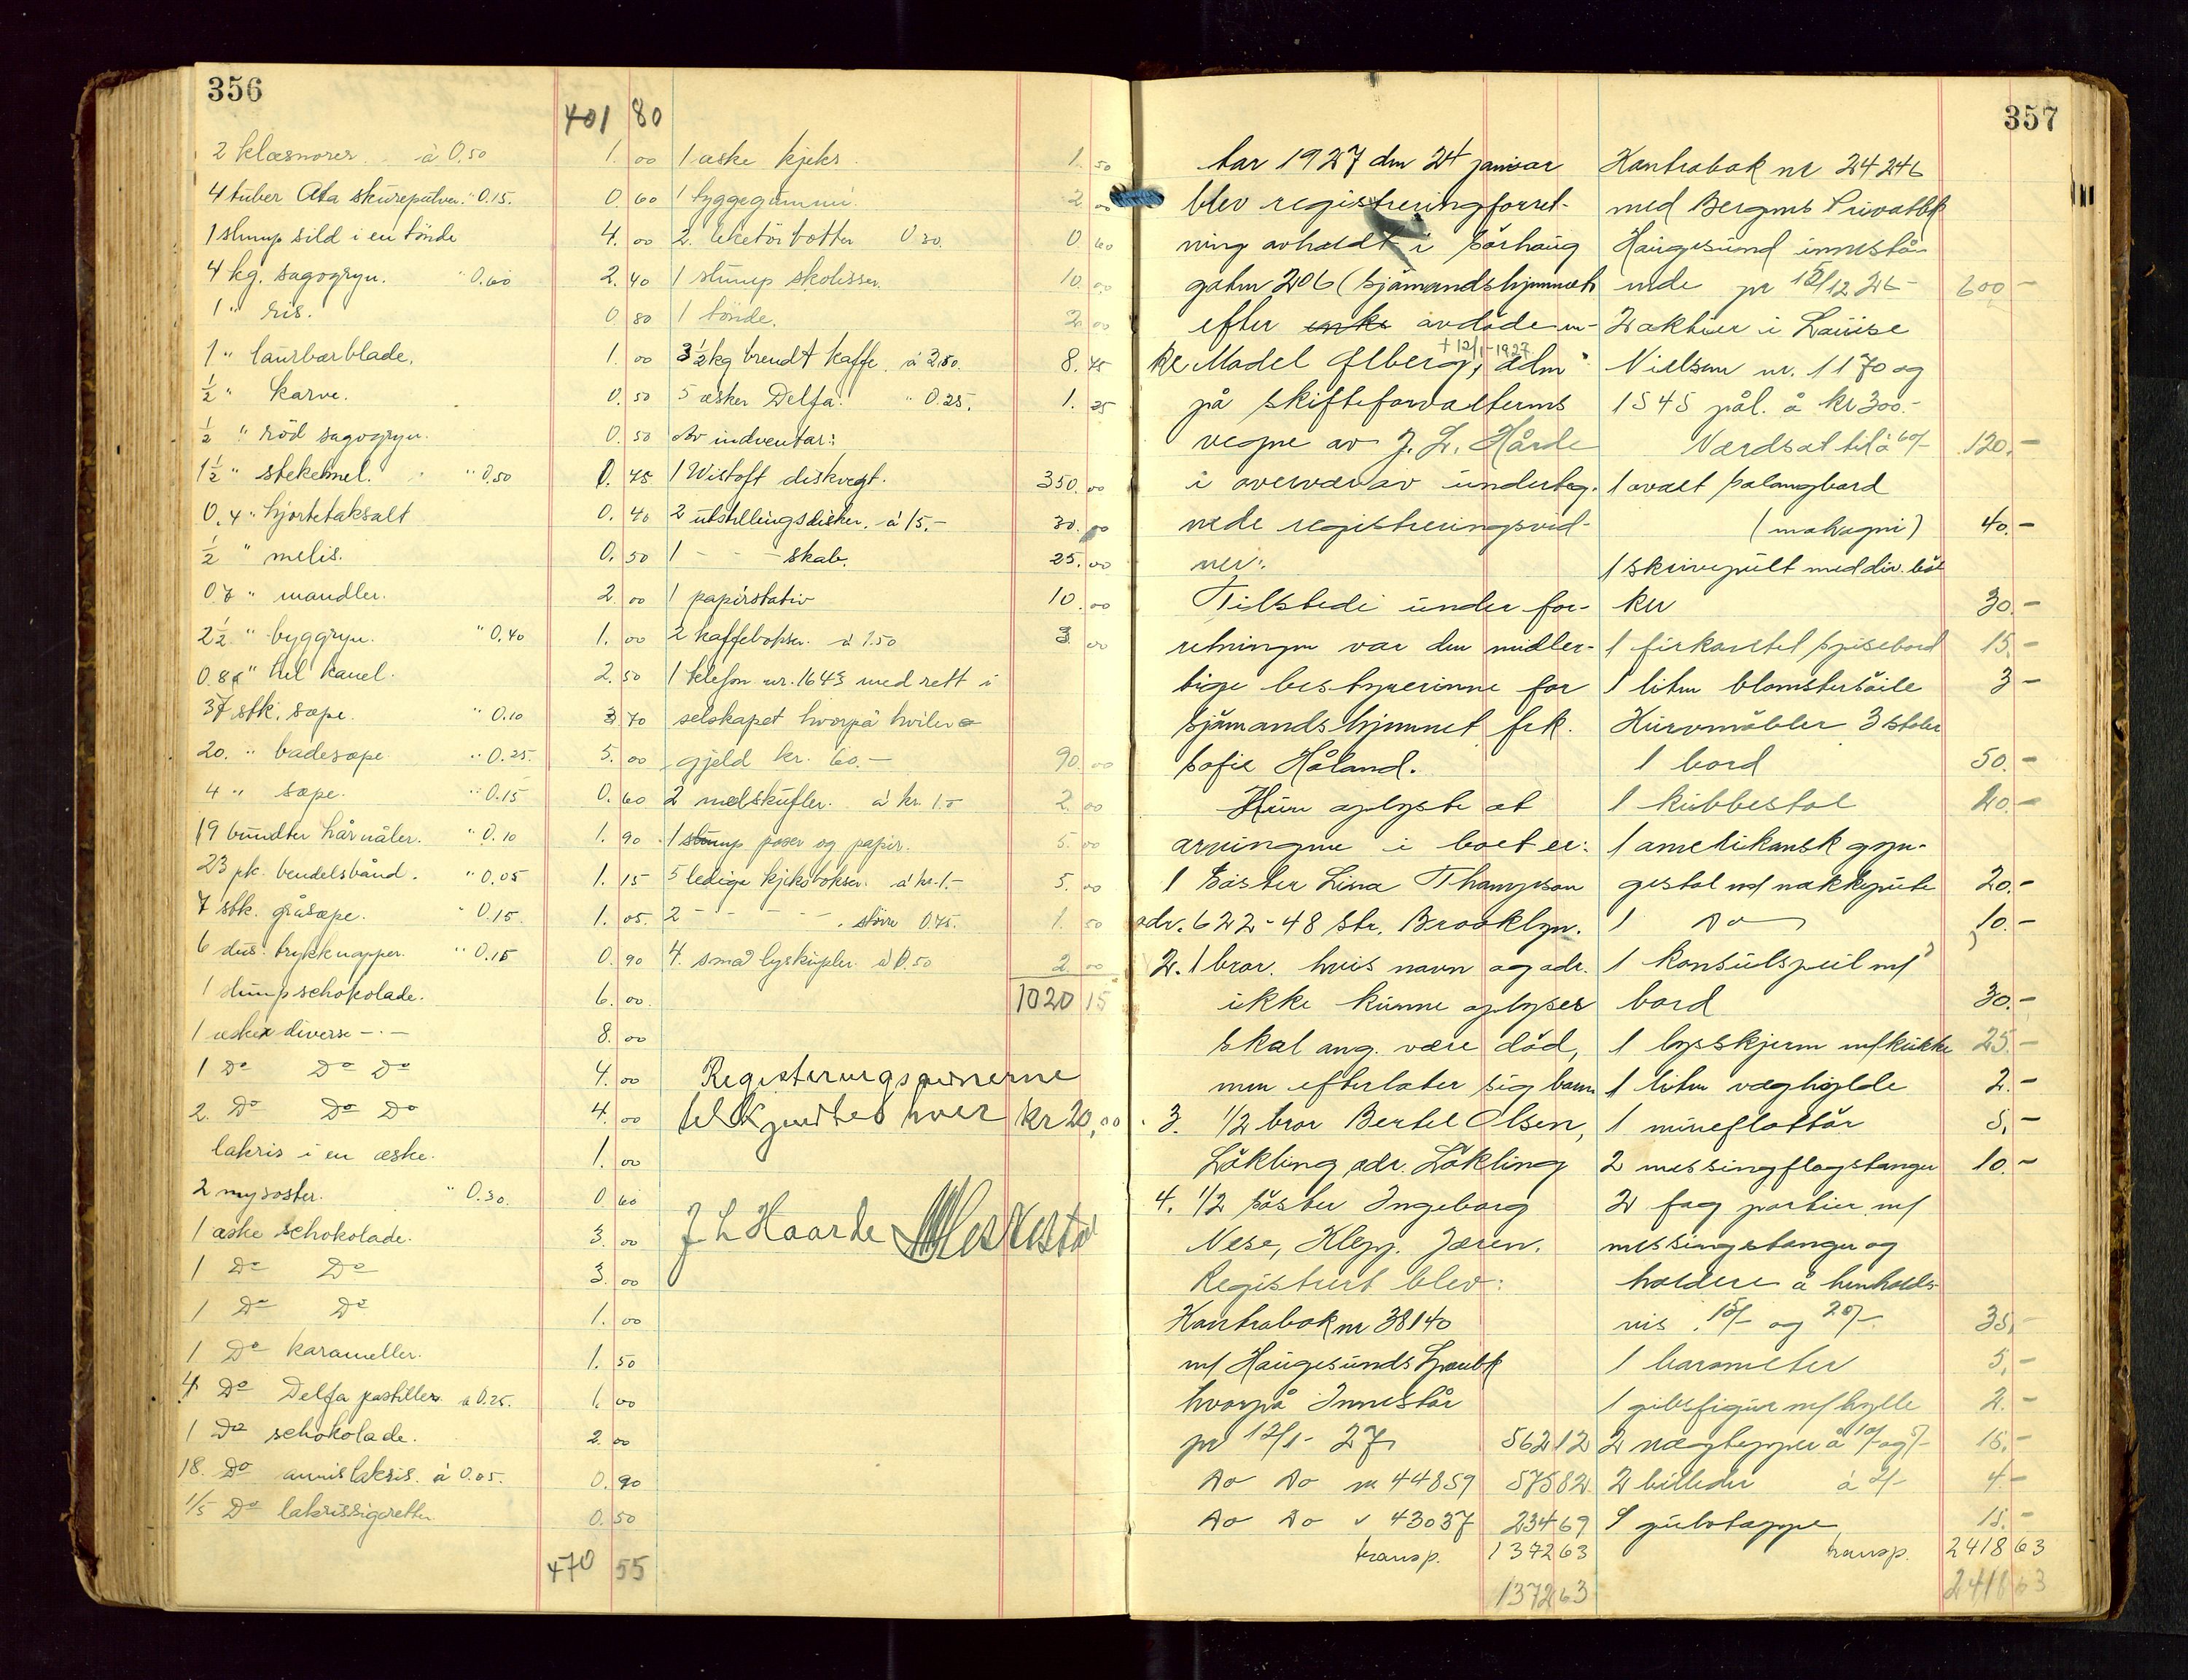 356
401 80
2 klæsnorer. á 0.50 1.00
4 tuber Ata skurepulver. " 0.15. 0.60
1 slump sild i en tönde 4.00
4 kg. sagogryn. " 0.60 2.40
1 " ris. 0.80
1 " laurbærblade. 1.00
½ " karve. 0.50
½ " röd sagogryn. 0.50
1½ " stekemel. " 0.50 0.75
0.4 " hjortetaksalt 0.40
½ " melis. 0.50
0.7 " mandler. 2.00
2½ " byggryn. " 0.40 1.00
" hel kanel. 2.50
37 stk. sæpe. " 0.10 3.70
20. " badesæpe. " 0.25. 5.00
4 " sæpe. " 0.15 0.60
19 bundter hårnåler. " 0.10 1.90
23 pk. bendelsbånd. " 0.05 1.15
7 stk. gråsæpe. " 0.15. 1.05.
6 dus. trykknapper. " 0.15 0.90
1 slump schokolade. 6.00.
1 æske diverse -.- 8.00
1 Do Do Do 4.00
2. Do Do Do 4.00
lakris i en æske. 1.00
2 mysoster. " 0.30. 0.60
1 æske schokolade. 3.00
1 Do Do 3.00
1 Do Do 1.00
1 Do karameller. 1.50
4 Do Delfa pastiller á 0.25. 1.00
1 Do schokolade. 2.00
18. Do annislakris. á 0.05. 0.90
1/5 Do lakrissigaretter 0.50
470 55
1 æske kjeks. 1.50
1 tyggegummi. 2.00
2. 0.30. 0.60
1 slump skolisser. 10.00
1 tönde. 2.00
3½ kg brendt kaffe. á 2.50. 8.75
5 æsker Delfa. " 0.25. 1.25
Av indventar:
1 Wistoft diskvegt. 350.00
2 utstillingsdisker. á 15.- 30.00
1 - - - skab. 25.00
1 papirstativ 10.00
2 kaffebokser. á 1.50 3.00
1 telefon nr. 1643 med rett i
selskapet hvorpå hviler
gjeld kr. 60.- 90.00
2 melskufler. á kr. 1.- 2.00
1 slump poser og papir. 5.00
5 ledige kjeksbokser. á kr. 1.- 5.00
2 - - - - - . större 0.75. 1.50
4. små lyskupler. á 0.50 2.00
1020 15
Registreringsvidnerne
tilkjendtes hver kr 20,00
J L Haarde
357
tar 1927 den 24 januar
blev registreringforret-
ning avholdt i Sörhaug
gaten 206 (Sjömandshjemmet)
efter enke avdöde en-
† 12/1-1927
ke Madel Ølberg, adm
på skifteforvalterens
vegne av J. L. Hårde
i overvær av underteg-
nede registreringsvid-
ner:
Tilstede under for-
retningen var den midler-
tige bestyrerinne for
sjömandshjemmet frk.
Sofie Håland.
Hun oplyste at
arvingene i boet er:
1 Söster Lina Thompson
adr. 622-48 Str. Brooklyn.
2. 1 bror. hvis navn og adr.
ikke kunne oplyses
skal ang. være död,
men efterlater sig barn
3. 1/2 bror Bertel Olsen,
Lökling adr. Lökling
4. 1/2 söster Ingeborg
Nese, Klepp. Jæren.
Registrert blev:
Kontrabok nr 38140
m/ Haugesunds Sparebk
hvorpå Innestår
pr 12/1- 27 562 12
Do Do nr 44859 575 82
Do Do " 43037 234 69
transp. 1372 63
1372 63
Kontrabok nr 24246
med Bergens Privatbk
Haugesund innestå-
ende pr 15/12 26- 600 -
2 aktier i Louise
Nielsen nr. 1170 og
1545 pål. å kr 300.-
Værdsat til á 60/- 120.-
1 ovalt salongbord
(mahogni) 40.-
1 skrivepult med div. bö-
ker 30.-
1 firkantet spisebord 15.-
1 liten blomstersöile 3 -
Kurvmöbler 3 stoler
1 bord 50.-
1 kubbestol 20.-
1 amerikansk gyn-
gestol m/ nakkepute 20.-
1 Do 10.-
1 konsulspeil m/
bord 30.-
1 lysskjerm m/ krukke 25.-
1 liten væghylde 2.-
1 mineflottör 5.-
2 messingflagstanger 10.-
2 fag portier m/
messingstanger og
holdere á henholds-
vis 15/- og 20/- 35.-
1 barometer 5.-
1 gibsfigur m/ hylle 2.-
2 vægtepper á 10/- og 5/- 15.-
2 billeder á 2/- 4.-
1 gulvteppe 15.-
transp. 2418 63
2418 63